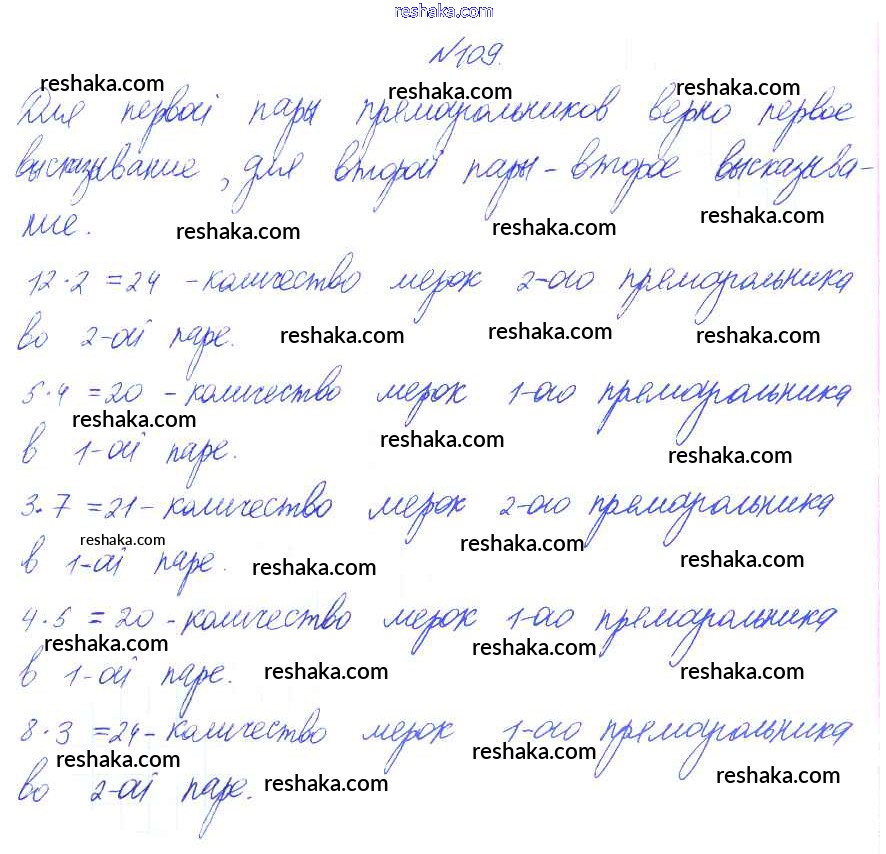 reshaka.com
№109.
reshaka.com reshaka.com reshaka.com
Для первой пары прямоугольников верно первое
высказывание, для второй пары - второе высказыва-
ние. reshaka.com reshaka.com reshaka.com
12·2=24 - количество мерок 2-ого прямоугольника
во 2-ой паре. reshaka.com reshaka.com reshaka.com
5·4=20 - количество мерок 1-ого прямоугольника
reshaka.com reshaka.com reshaka.com
в 1-ой паре.
3·7=21 - количество мерок 2-ого прямоугольника
reshaka.com reshaka.com reshaka.com
в 1-ой паре. reshaka.com
4·5=20 - количество мерок 1-ого прямоугольника
reshaka.com reshaka.com
в 1-ой паре. reshaka.com reshaka.com
8·3=24 - количество мерок 1-ого прямоугольника
reshaka.com reshaka.com
во 2-ой паре. reshaka.com reshaka.com